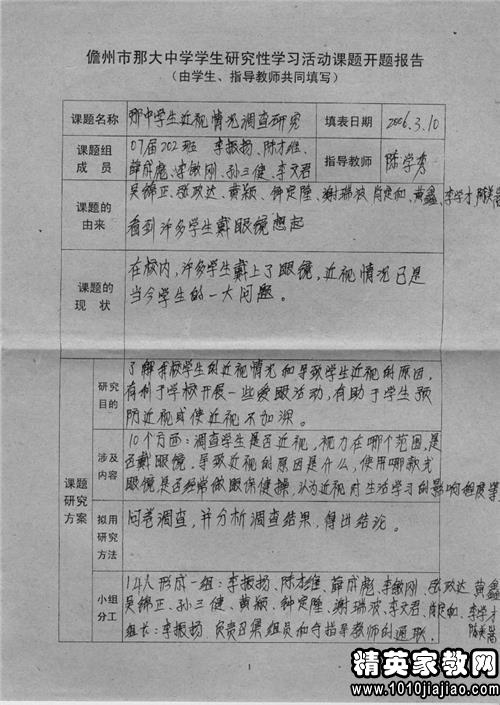 儋州市那大中学学生研究性学习活动课题开题报告
（由学生、指导教师共同填写）
课题名称 那中学生近视情况调查研究 填表日期 2006.3.10
课题组成员 07届202班 李振扬、陈才维、
薛成彪、李敏刚、孙三健、李文君 指导教师 陈学秀
吴锦正、张政达、黄颖、钟定陞、谢瑞波、黄鑫、李学才
课题的由来 看到许多学生戴眼镜想起
课题的现状 在校内，许多学生戴上了眼镜，近视情况已是
当今学生的一大问题。
课题研究方案
研究目的 了解我校学生的近视情况和导致学生近视的原因，
有利于学校开展一些爱眼活动，有助于学生预
防近视或使近视不加深。
涉及内容 10个方面：调查学生是否近视，视力在哪个范围，是
否戴眼镜，导致近视的原因是什么，使用哪款式
眼镜，是否经常做眼保健操，认为近视对生活学习的影响程度等
拟用研究方法 问卷调查，并分析调查结果，得出结论。
小组分工 14人形成一组：李振扬、陈才维、薛成彪、李敏刚、张政达、黄鑫
吴锦正、孙三健、黄颖、钟定陞、谢瑞波、李文君、李学才
组长：李振扬，负责召集组员和与指导教师的通联。
1
精英家教网
www.1010jiajiao.com